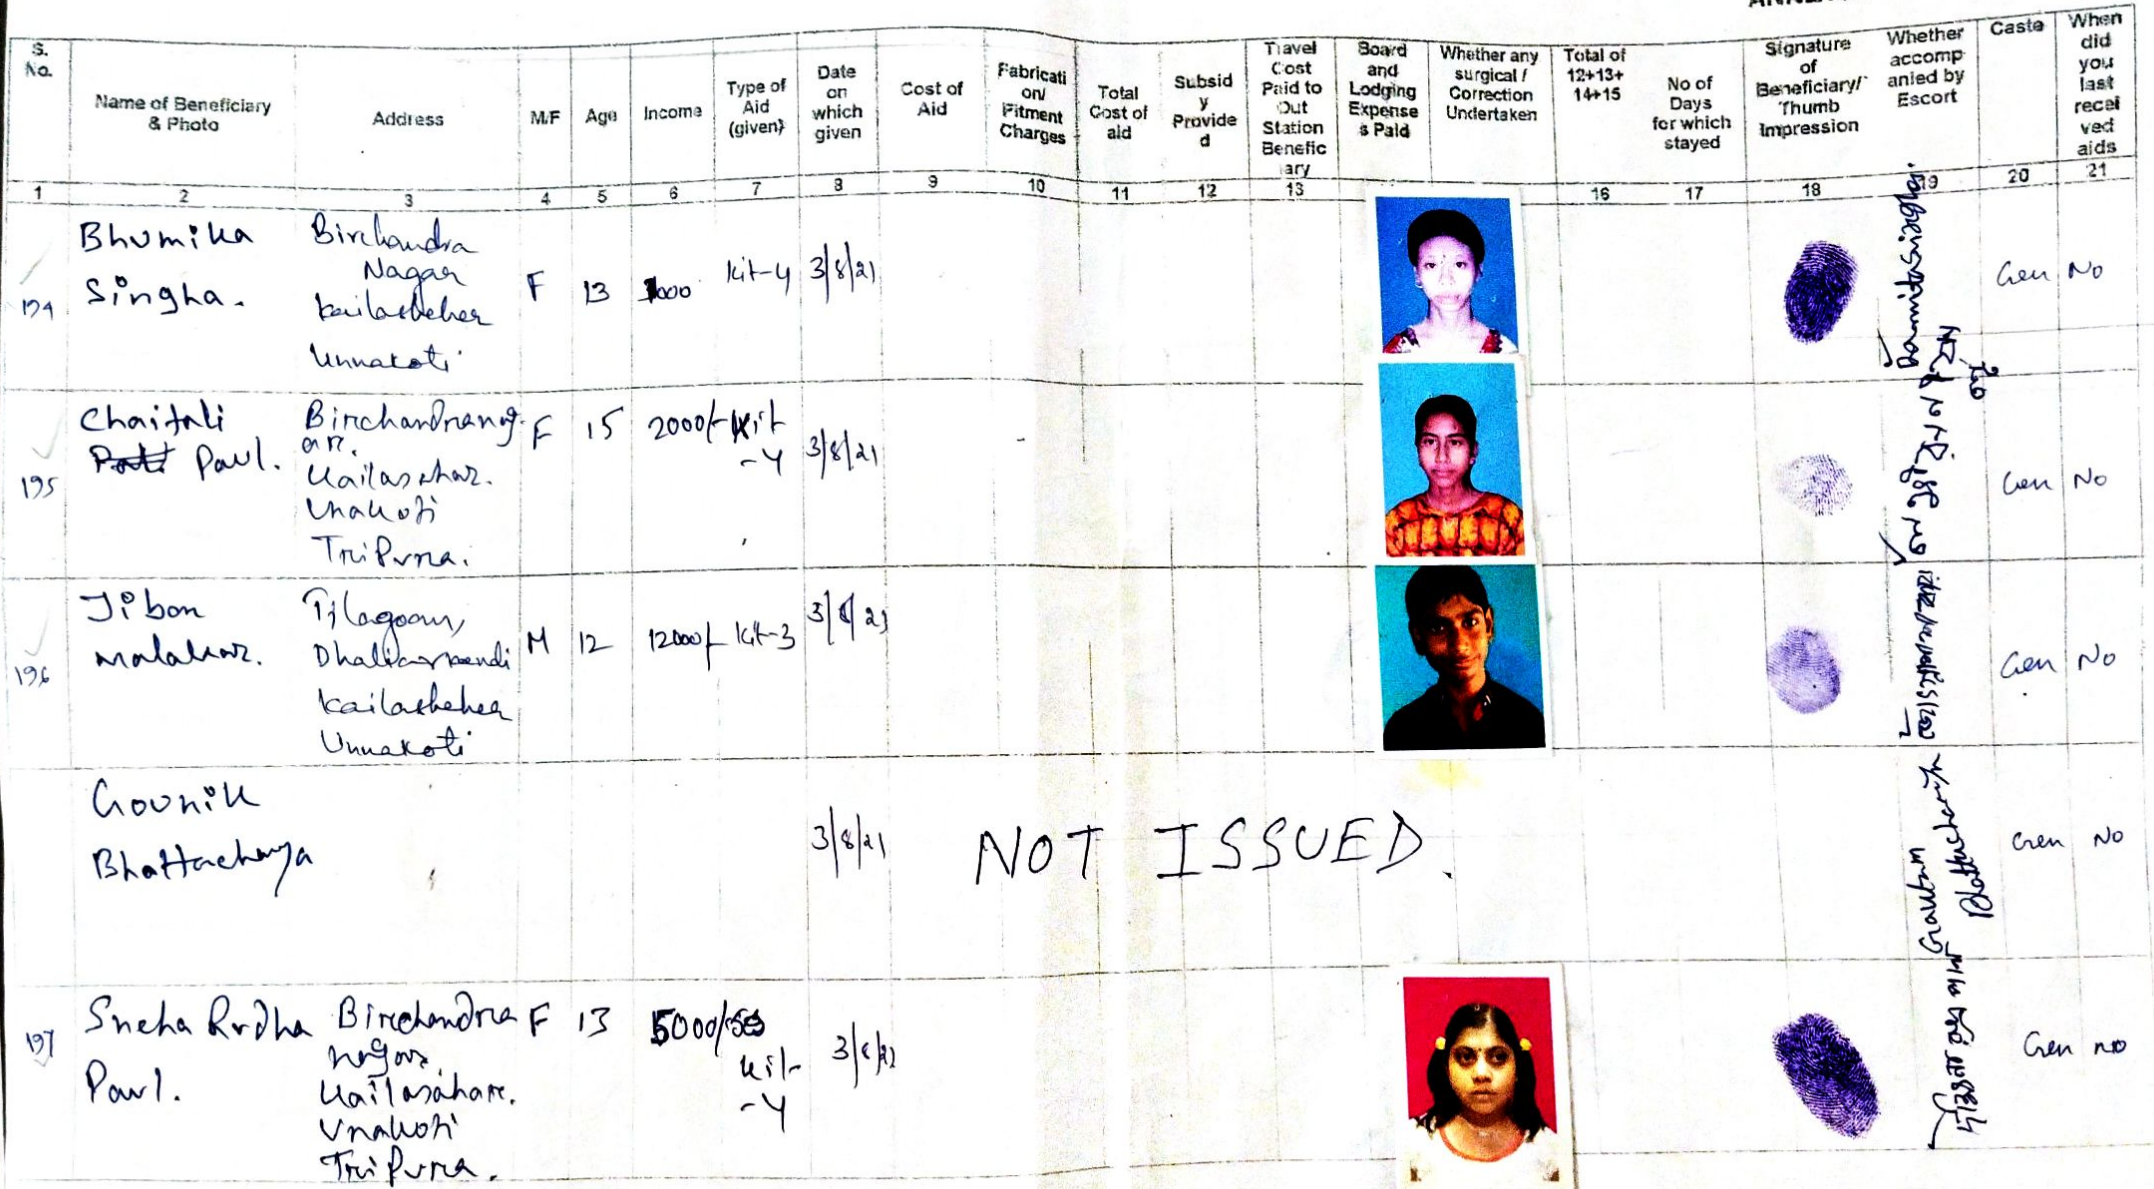 S. No.
Name of Beneficiary & Photo
Address
M/F
Age
Income
Type of Aid (given)
Date on which given
Cost of Aid
Fabricati on/ Fitment Charges
Total Cost of aid
Subsid y Provide d
Travel Cost Paid to Out Station Benefic iary
Board and Lodging Expense s Paid
Whether any surgical / Correction Undertaken
Total of 12+13+ 14+15
No of Days for which stayed
Signature of Beneficiary/ Thumb Impression
Whether accomp anied by Escort
Caste
When did you last recei ved aids
1 2 3 4 5 6 7 8 9 10 11 12 13 16 17 18 19 20 21
194
Bhumika
Singha.
Birchandra
Nagar
Kailasheher
Unnakoti
F 13 Kit-4 3/8/21
Gen No
195
Chaitali
Paul.
Birchandranag
ar.
Kailasahar.
Unakoti
Tripura.
F 15 2000/- Kit
-4
3/8/21
Gen No
196
Jibon
Malakar.
Kailasheher
Unnakoti
M 12 12000/- Kit-3
3/8/21
Gen No
Gounik
Bhattacharya
3/8/21
NOT ISSUED.
Goutam
Bhattacharya
Gen No
197
Sneha Rudha
Paul.
Birchandra
nagar
Kailasahar.
Unakoti
Tripura.
F 13 5000/-
Kit-
-4
3/8/21
Gen no